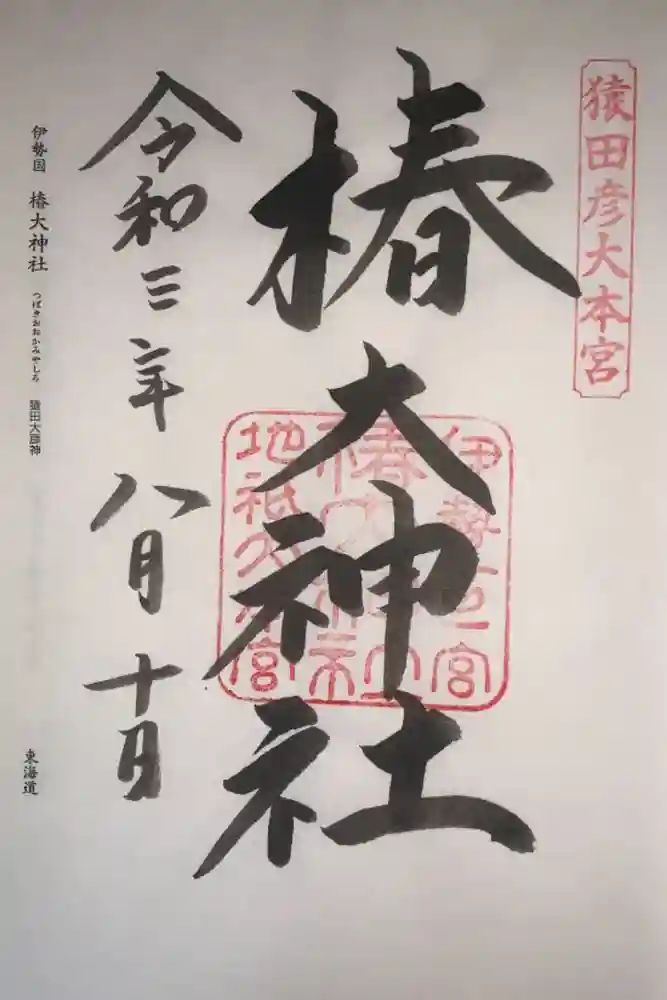 猿田彦大本宮
椿大神社
伊勢一宮
椿大神社
地祇大本宮
令和三年八月十日
伊勢国 椿大神社 つばきおおかみやしろ 猿田大彦神
東海道